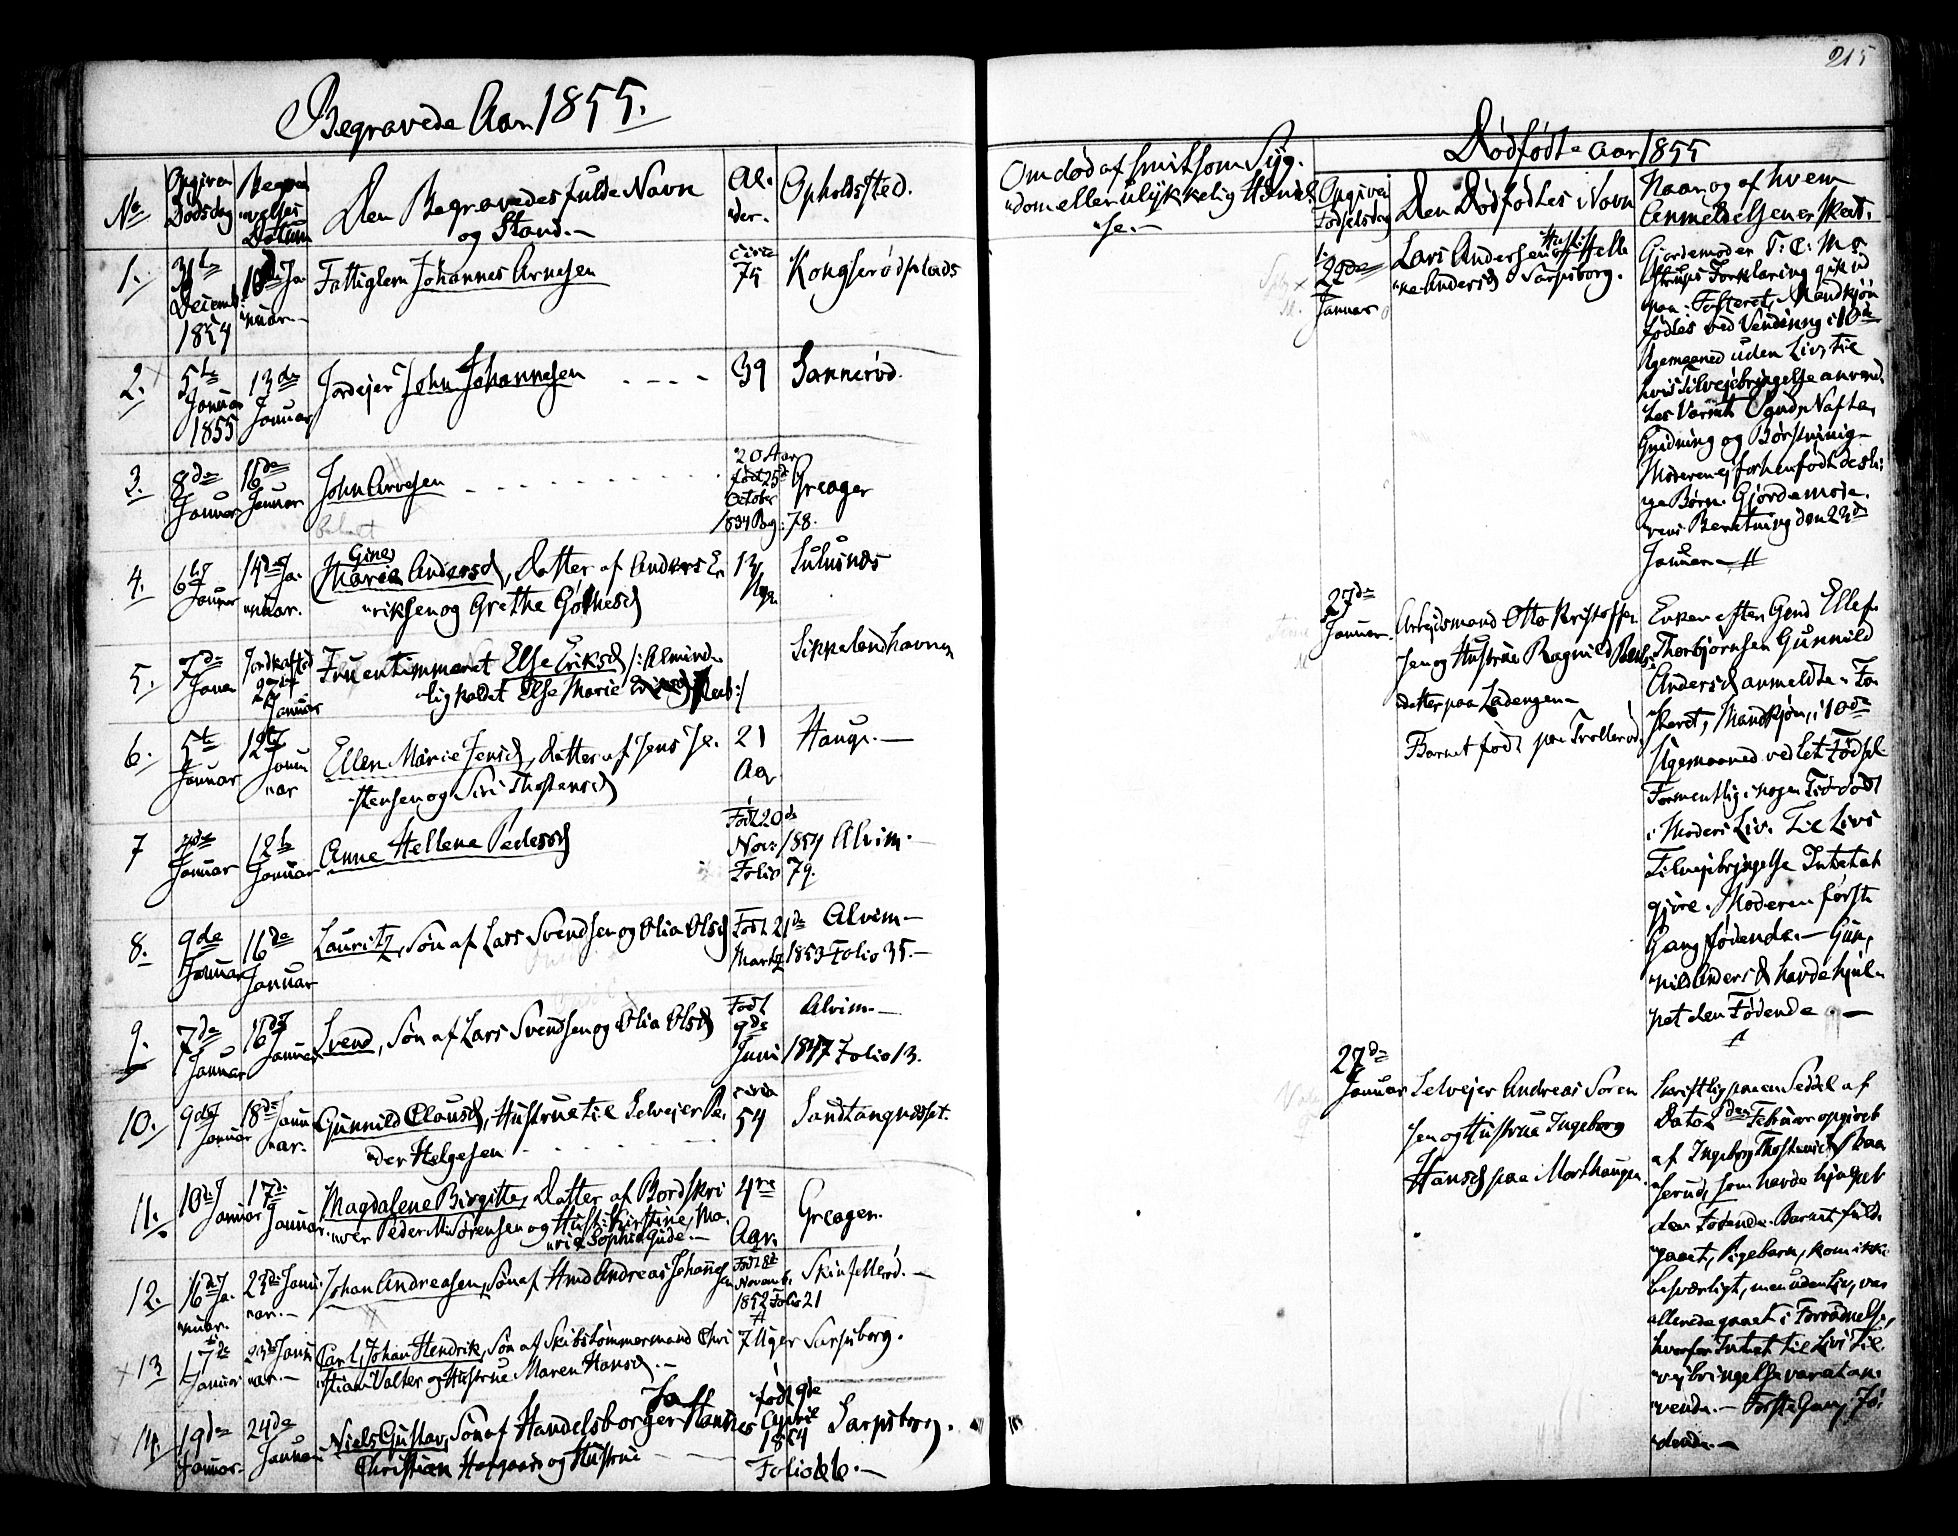 215
Begravede Aar 1855.
No
Opgiven Dødsdag
Begravelses Datum
Den Begravedes fulde Navn
og Stand.
Alder.
Opholdssted.
1. 31te Decemb: 1854 10de Januar Fattiglem Johannes Arnesen circa 75 Kongsrødpladsen
2. 5te Januar 1855 13de Januar Jordejer John Johannesen 39 Sannerød.
3. 8de Januar 16de Januar John Arvesen 20 Aar født 25de October 1834 Pag: 78. Greager
4. 6te Januar 14de Januar Gine Maria Andersd, Datter af Anders Er
riksen og Grethe
13 Uger
5. 7de Januar Jordkastet 2 Januar Fruentimmeret Else Eriksd /: Almind-
lig kaldet Else Marie
Sikkelandhavnen
6. 5te Januar 12te Januar Ellen Marie Jensd, Datter af Jens Je-
stensen og Siri Thostensd
21 Aar Hauge.
7 4de Januar 12te Januar Anne Hellene Pedersd Født 20de Nov: 1854 Folio 79. Alvim.
8. 9de Januar 16de Januar Lauritz, Søn af Lars Svendsen og Olia Olsd Født 21de Marts 1853 Folio 35. Alvim
9. 7de Januar 16de Januar Svend, Søn af Lars Svendsen og Olia Olsd Født 9de Juni 1847 Folio 13. Alvim
10. 9de Januar 18de Januar Gunnild Clausd, Hustrue til Selvejer Pe-
der Helgesen
circa 54 Sandtangnesset.
11. 10de Januar 17de Januar Magdalene Birgitte, Datter af Bordskri
ver Peder M. Sørensen og Hust: Kirstine, Ma-
rie Sophie Gude.
4re Aar. Greager.
12. 16de Januar. 23de Januar. Johan Andreasen, Søn af Hmd Andreas Johannesen Født 8de Novemb. 1852 Folio 21 Skinfellerød.
13 17de Januar 23de Januar Carl, Johan Hendrik, Søn af Skibstømmermand Chri
stian Valter og Hustrue Maren Hansd.
7 Uger Sarpsborg.
14. 19de Januar. 24de Januar Niels Gustav, Søn af Handelsborger Hans
Christian og Hustrue
født 9de April 1854 Folio Sarpsborg.
Om død af smitsom Syg-
dom eller ulykkelig Hændel-
se.
Dødfødte Aar 1855
Opgiven Fødselsdag
Den Dødfødtes Navn
Naar og af hvem
Anmeldelsen er skeet.
22de Januar
Lars Andersen og Hustrue Helle
ne Andersd Sarpsborg.
Gjordemoder T: C: M:
Strups Forklaring gik ud
paa: Fosteret, Mandkjøn
fødtes ved Vending i 10de
Ugemaaned uden Liv, til
hvis Tilvejebringelse anvend-
tes Varmt Vand, Nafta,
Gnidning og Børstning
Moderen ej forhen født desli-
ge Børn. Gjordemode-
rens Beretning den 23de
Januar
27de Januar
Arbejdsmand Otto Kristoffer
sen og Hustrue Ragnild Paals-
datter paa Ladengen
Barnet født paa Trollerød
Enken efter Gmd Ellef
Thorbjørnsen Gunnild
Andersd anmeldte Fo-
steret, Mandkjøn, i 10de
Ugemaaned ved let Fødsel
Formentlig i nogen Tid dødt
i Moders Liv. Til Livs
Tilvejebringelse Intet at
gjøre. Moderen første
Gang fødende. Gun-
nild Andersd havde hjul-
pet den Fødende
27de Januar
Selvejer Andreas Soren
sen og Hustrue Ingeborg
Hansd paa Morthaugen
Skriftlig paa en Seddel af
Dato 2den Februar opgivet
af Ingeborg Thostensd Raa
serud, som havde hjulpet
den Fødende. Barnet fuld-
gaaet, Pigebarn, kom ikke
besværligt, men uden Liv, var
allerede gaaet i Forraadnelse,
hvorfor Intet til Livs Til-
vejebringelse var at an-
vende. Første Gang Fø-
dende.